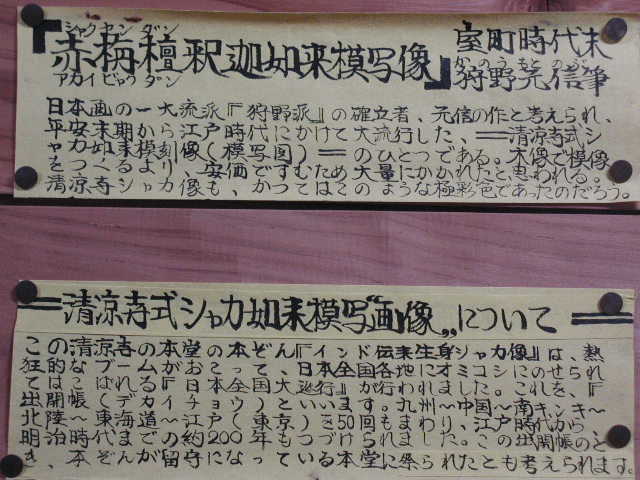 シャク セン ダン
『赤栴檀釈迦如来模写像』
アカイビャクダン
室町時代末
かのうもとのぶ
狩野元信筆
日本画の一大流派『狩野派』の確立者、元信の作と考えられ、
平安末期から江戸時代にかけて大流行した、＝清涼寺式シ
ャカ如来模刻像(模写図)＝のひとつである。木像で模像
をつくるより、安価ですむため大量にかかれたと思われる。
清涼寺シャカ像も、かつてはこのような極彩色であったのだろう。
＝清涼寺式シャカ如来模写“画像„について＝
この清涼寺の本堂の本ぞん『インド伝来生身シャカ像』は、熱
狂的なブームがおこって日本全国各地にオミコシにのせられ
てはこばれる『日本全国大巡行』が行われました。これを、『
出開帳(デカイチョウ)といいます。九州～中国～南キンキ～
北陸～東海道～江戸(東京)を50回もまわり、江戸時代から
明治時代までの約200年もつづけられました。この出開帳のと
き、本ぞんが留守になっている本堂に祭られたとも考えられます。